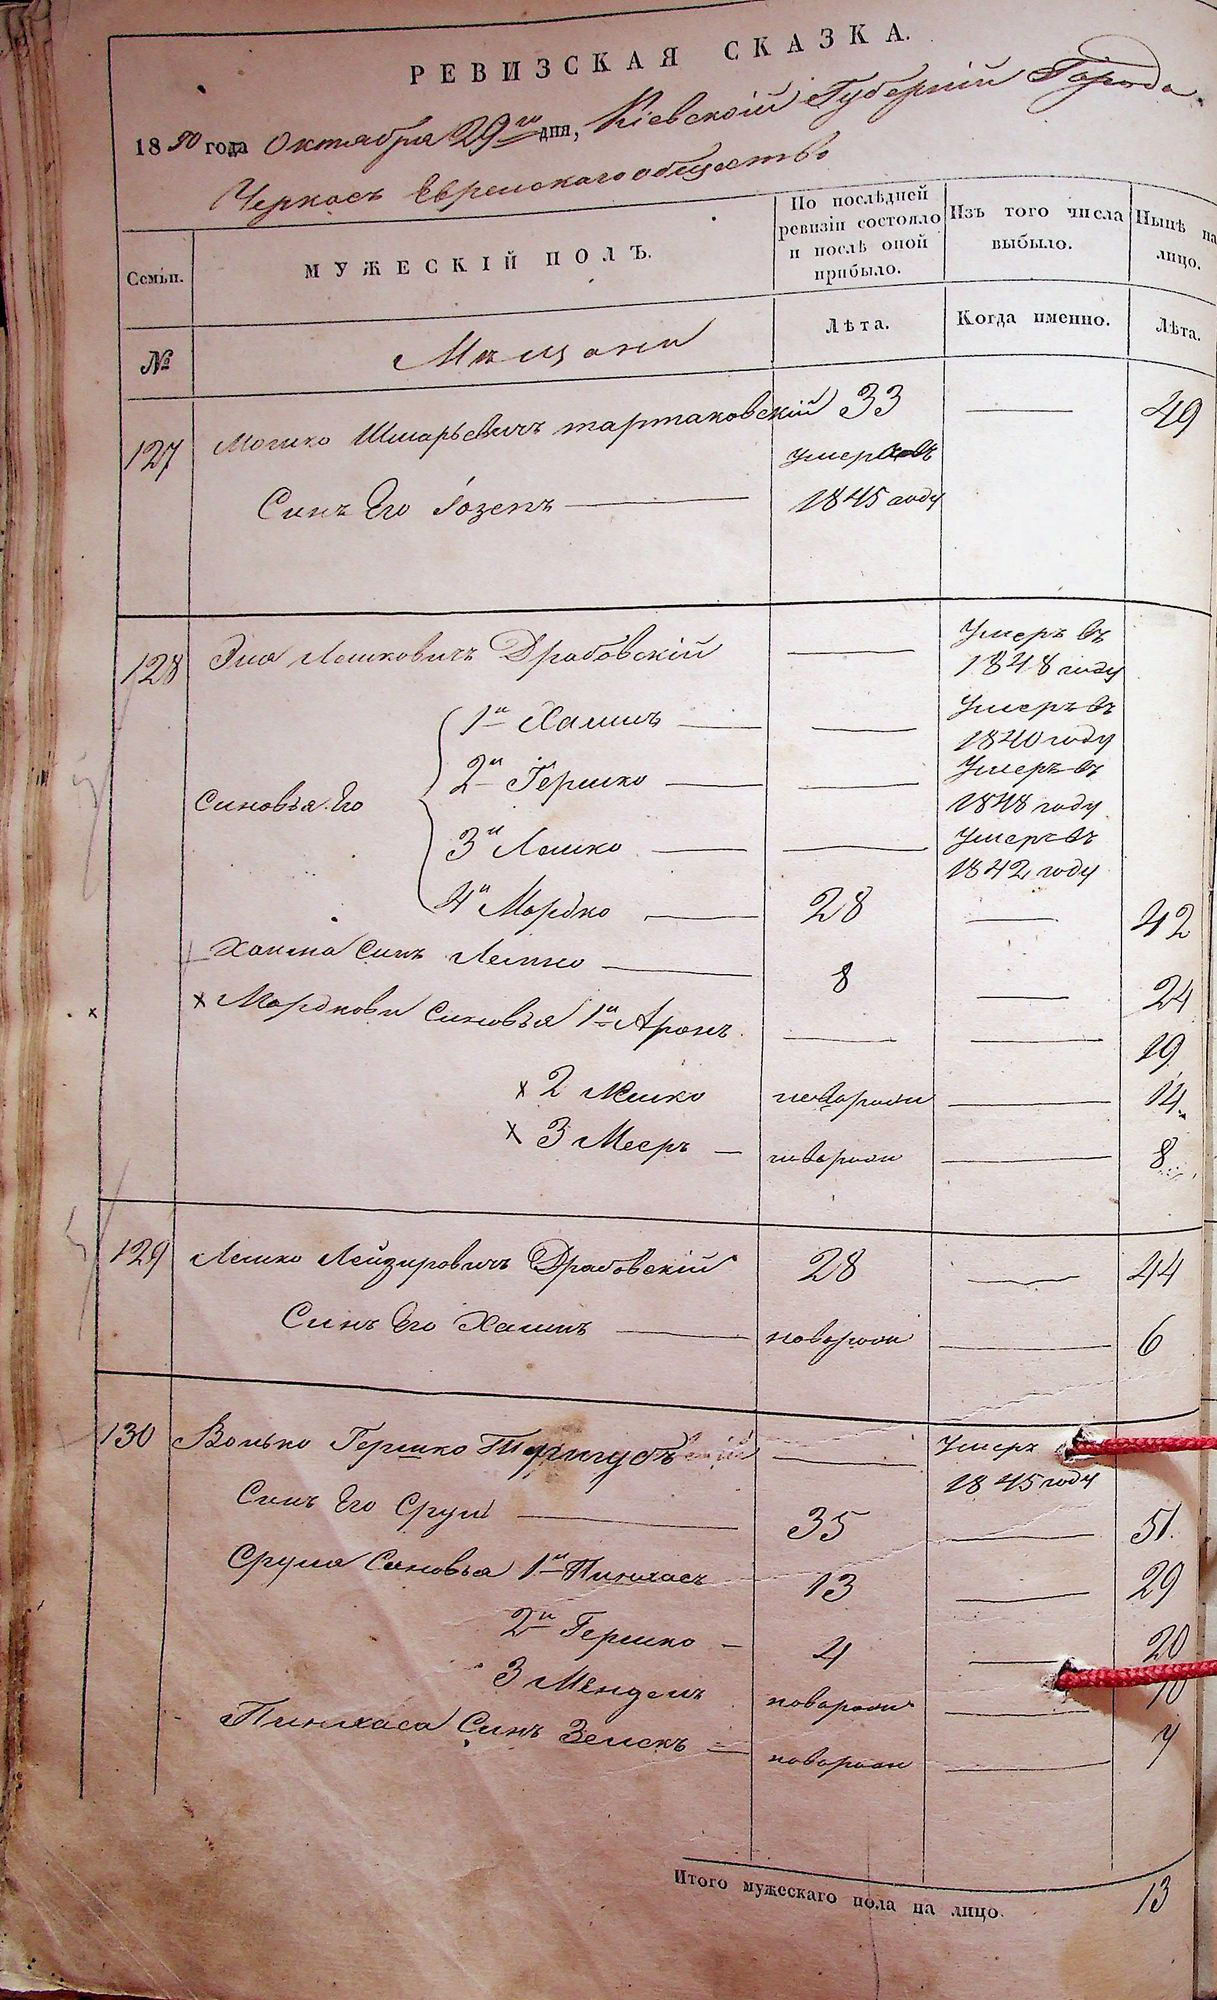 РЕВИЗСКАЯ СКАЗКА.
1850 года Октября 29го дня, Кіевской Губерніи Города
Черкасъ Еврейскаго общества
Семьи. МУЖЕСКІЙ ПОЛЪ. По послѣдней ревизіи состояло и послѣ оной прибыло. Изъ того числа выбыло. Нынѣ на лицо.
№ Мѣщани Лѣта. Когда именно. Лѣта.
127 Мошко Шмарьевичъ тартаковскій 33 49
Синъ Его Іозепъ умеръ въ 1845 году
128 Элиа Лешковичъ Драбовскій Умеръ въ 1848 году
Синовья Его
1й Хаимъ Умеръ въ 1840 году
2й Гершко Умеръ въ 1848 году
3й Лешко Умеръ въ 1842 году
4й Мордко 28 42
Хаима Синъ Лешко 8 24
х Мордкови Синовья 1й Аронъ 19
х 2 Лешко новорожн 14
х 3 Мееръ новорожн 8
129 Лешко Лейзировичъ Драбовскій 28 44
Синъ Его Хаимъ новорожн 6
130 Волько Гершко Умеръ 1845 году
Синъ Его Сруль 35 51
Сруля Синовья 1й Пинхасъ 13 29
2й Гершко 4 20
3 Мендель новорожн 10
Пинхаса Синъ Зеликъ новорожн 7
Итого мужескаго пола на лицо. 13